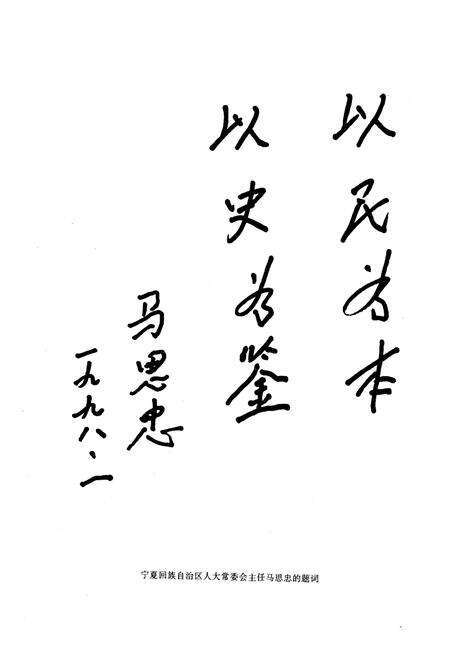 以民为本
以史为鉴
马思忠
一九九八、一
宁夏回族自治区人大常委会主任马思忠的题词